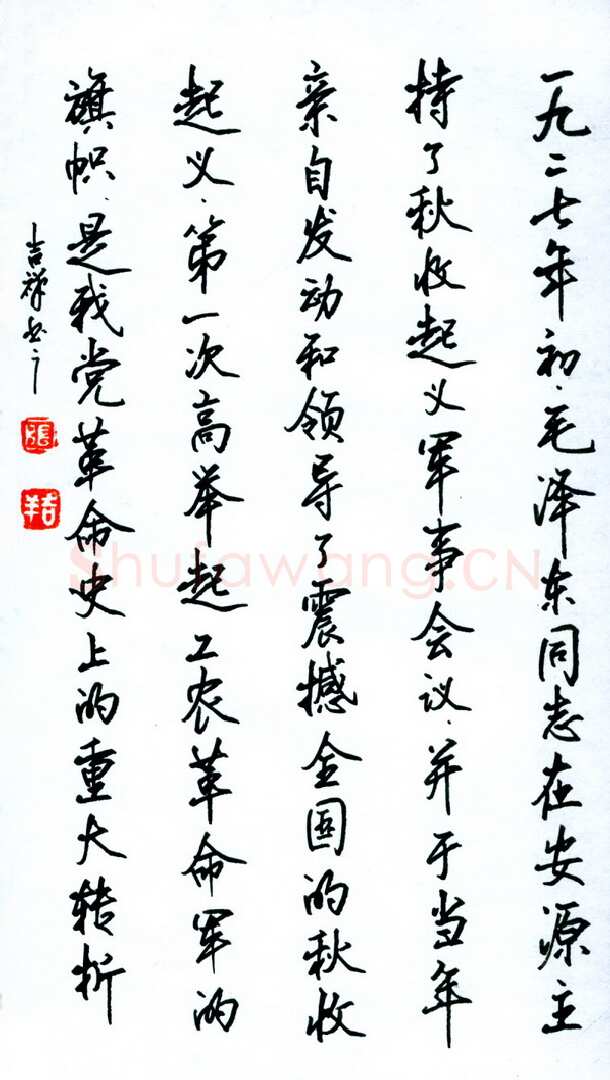 一九二七年初、毛泽东同志在安源主
持了秋收起义军事会议、并于当年
亲自发动和领导了震撼全国的秋收
起义、第一次高举起工农革命军的
旗帜、是我党革命史上的重大转折
吉祥书于
張
吉羊
Shufawang.CN